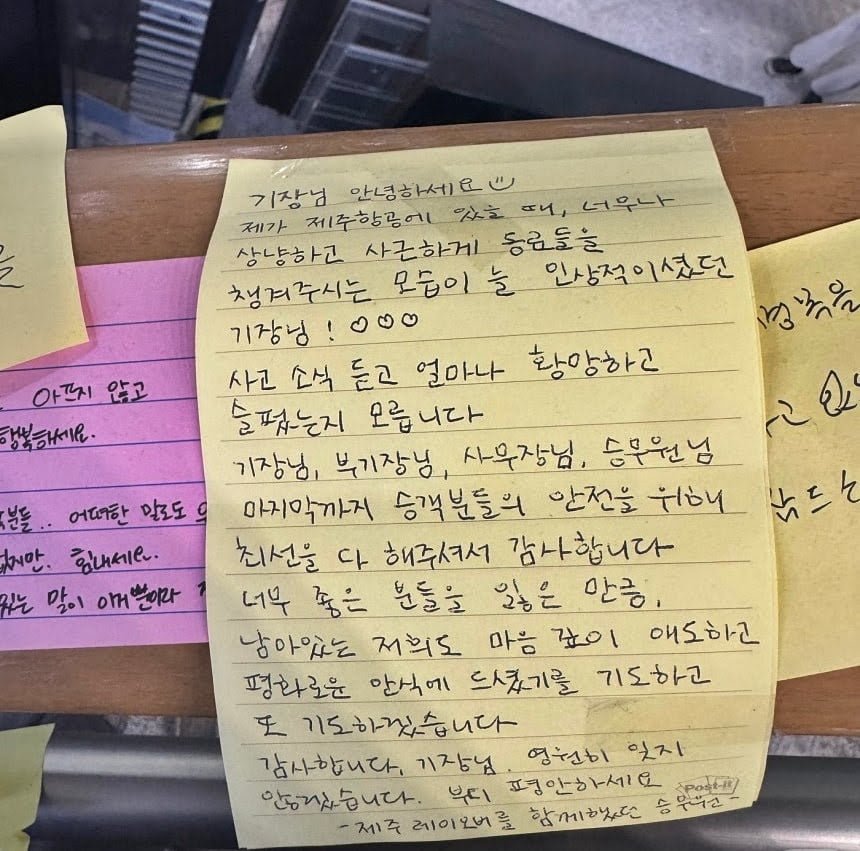 을
아프지 않고
행복하세요.
분들.. 어떠한 말로도
없지만. 힘내세요.
있는 말이 이거뿐이라
기장님 안녕하세요
제가 제주항공에 있을 때, 너무나
상냥하고 사근하게 동료들을
챙겨주시는 모습이 늘 인상적이셨던
기장님! ♡♡♡
사고 소식 듣고 얼마나 황망하고
슬펐는지 모릅니다
기장님, 부기장님, 사무장님, 승무원님
마지막까지 승객분들의 안전을 위해
최선을 다 해주셔서 감사합니다
너무 좋은 분들을 잃은 만큼,
남아있는 저희도 마음 깊이 애도하고
평화로운 안식에 드셨기를 기도하고
또 기도하겠습니다
감사합니다, 기장님. 영원히 잊지
않겠습니다. 부디 평안하세요
Post-it
-제주 레이오버를 함께했던 승무원-